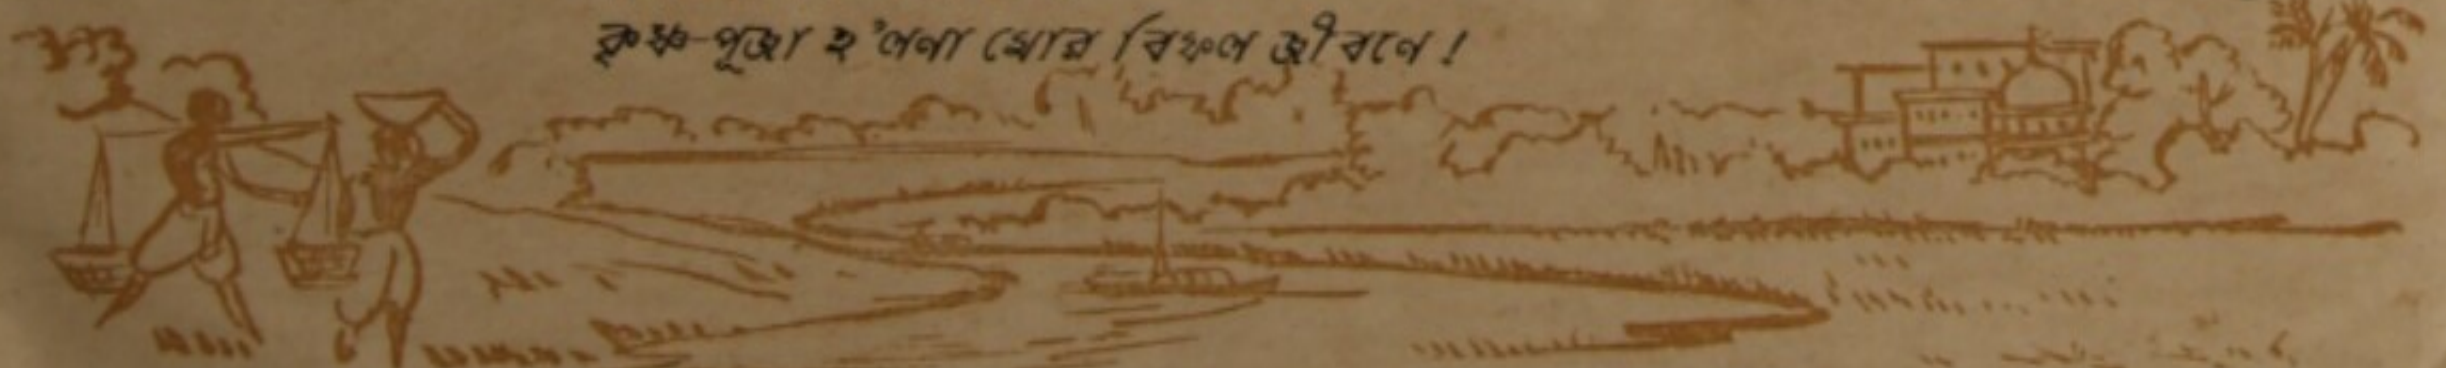 কৃষ্ণ-পূজা হ'লনা মোর বিফল জীবনে!